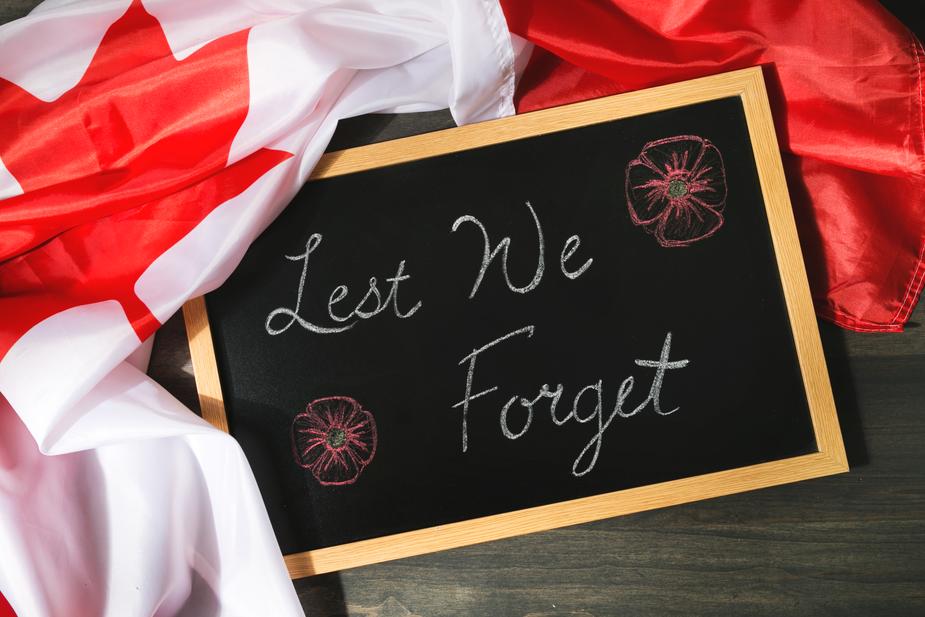 Lest We
Forget